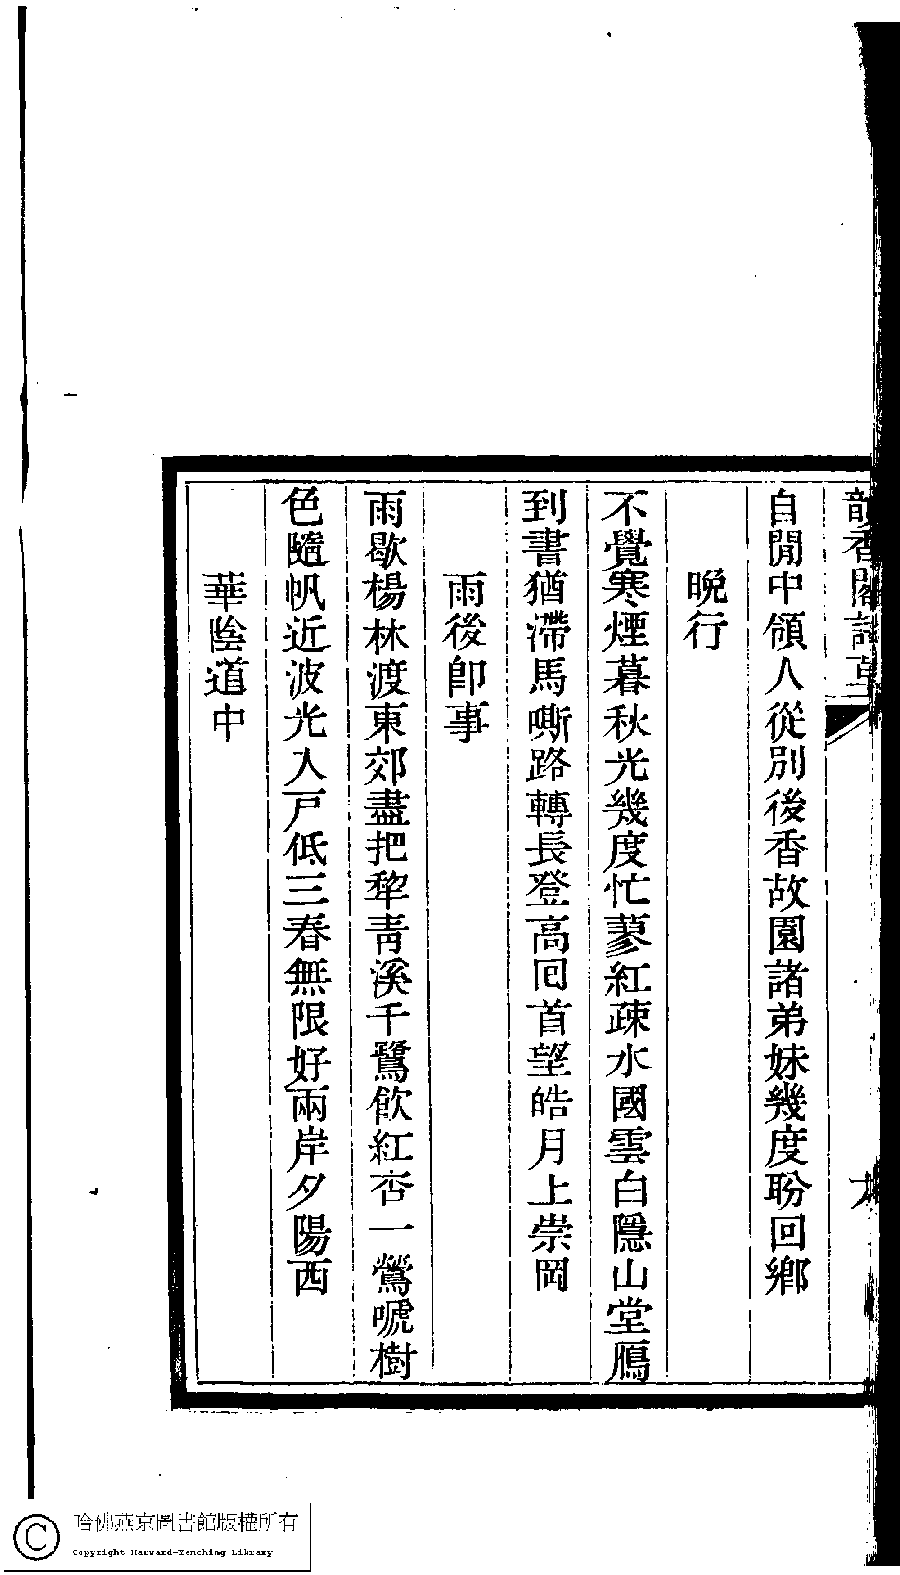 韻香閣詩草
自閒中領人從別後香故園諸弟妹幾度盼回鄉
晚行
不覺寒煙暮秋光幾度忙蓼紅疎水國雲白隱山堂鴈
到書猶滯馬嘶路轉長登高回首望皓月上崇岡
雨後卽事
雨歇楊林渡東郊盡把犂靑溪千鷺飮紅杏一鶯嗁樹
色隨帆近波光入戸低三春無限好兩岸夕陽西
華陰道中
哈佛燕京圖書館版權所有
Copyright Harvard-Yenching Library